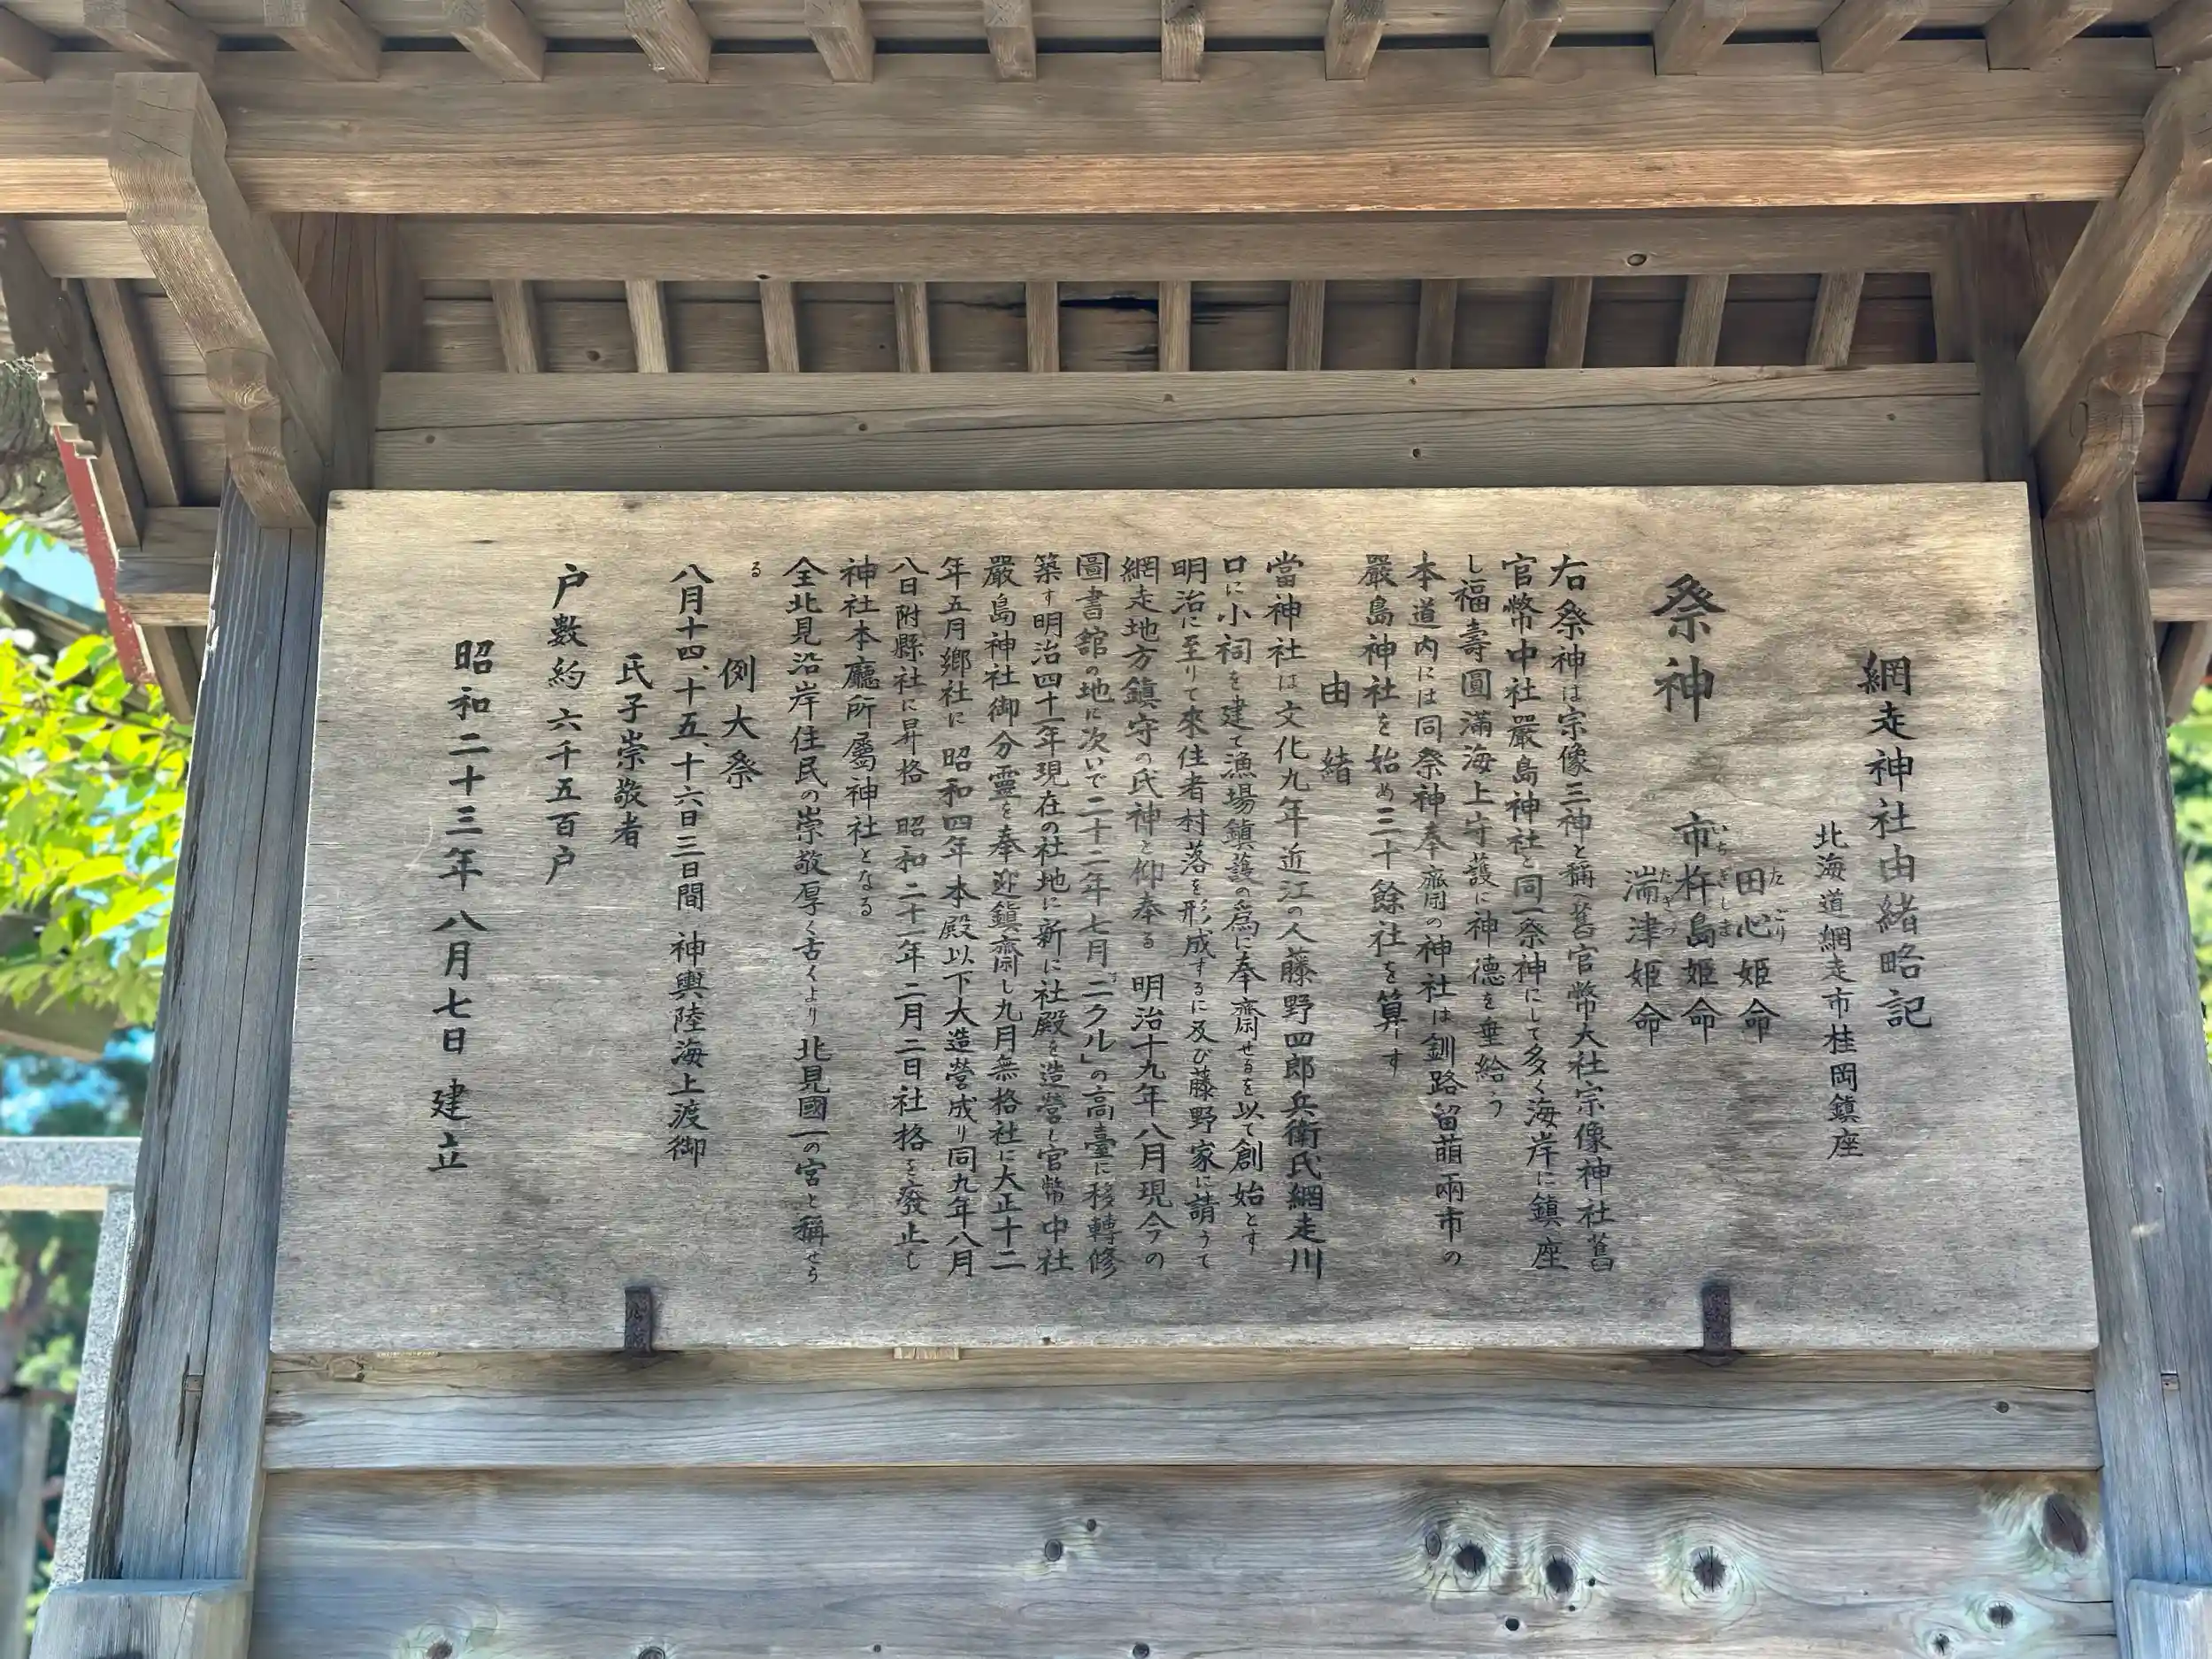 網走神社由緒略記
北海道網走市桂岡鎮座
祭神
田心姫命
たごり
市杵島姫命
いちきしま
湍津姫命
たぎつ
右祭神は宗像三神と稱し舊官幣大社宗像神社舊
官幣中社嚴島神社と同一祭神にして多く海岸に鎮座
し福壽圓滿海上守護に神德を垂給う
本道内には同祭神奉齋の神社は釧路留萌兩市の
嚴島神社を始め三十餘社を算す
由緒
當神社は文化九年近江の人藤野四郎兵衛氏網走川
口に小祠を建て漁場鎮護の爲に奉齋せるを以て創始とす
明治に至りて來住者村落を形成するに及び藤野家に請うて
網走地方鎮守の氏神と仰奉る 明治十九年八月現今の
圖書館の地に次いで二十二年七月「ニクル」の高臺に移轉修
築す明治四十一年現在の社地に新に社殿を造營し官幣中社
嚴島神社御分靈を奉迎鎮齋し九月無格社に大正十二
年五月郷社に 昭和四年本殿以下大造營成り同九年八月
八日附縣社に昇格 昭和二十一年二月二日社格を廢止し
神社本廳所屬神社となる
全北見沿岸住民の崇敬厚く古くより北見國一の宮と稱せら
る
例大祭
八月十四、十五、十六日三日間 神輿陸海上渡御
氏子崇敬者
戸數約六千五百戸
昭和二十三年八月七日 建立